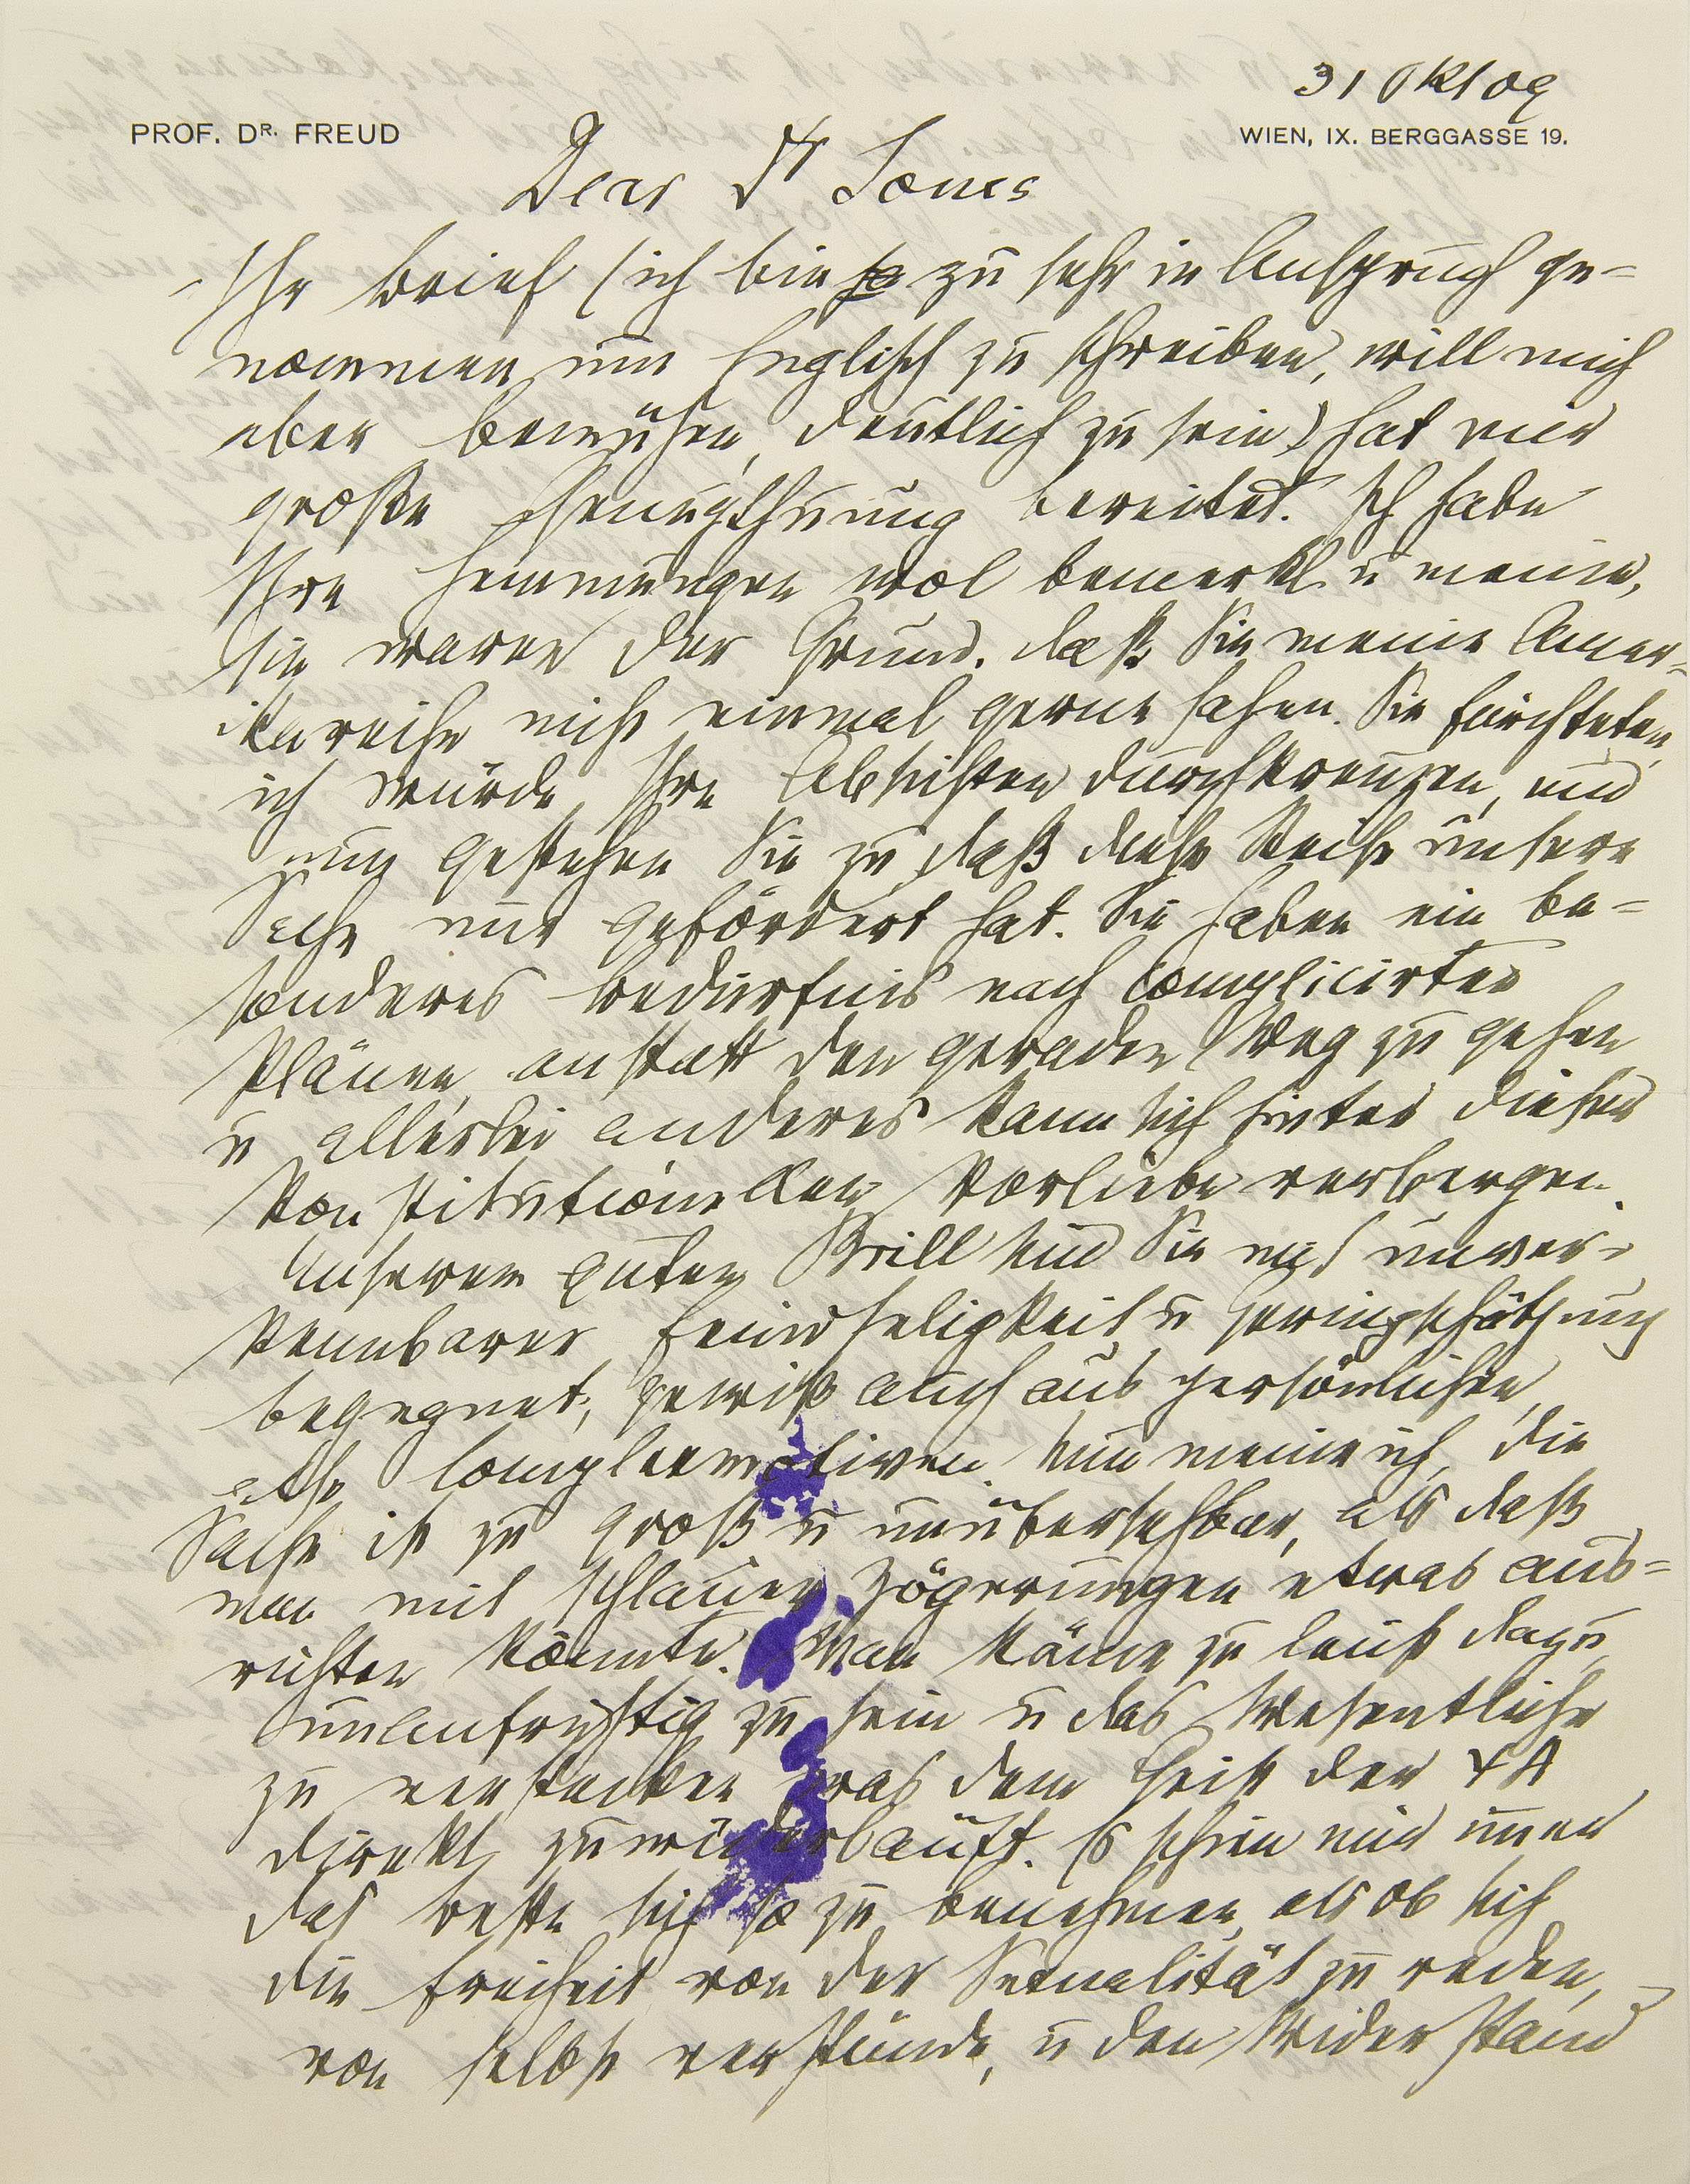 31 Okt 09
PROF. DR. FREUD
WIEN, IX. BERGGASSE 19.
Dear Dr Jones
Ihr Brief (ich bin so zu sehr in Anspruch ge=
nommen um Englisch zu schreiben, will mich
aber bemühen, deutlich zu sein) hat mir
große Genugthuung bereitet. Ich habe
Ihre Hemmungen wol bemerkt u meine,
sie waren der Grund, daß Sie meine Amer=
ikareise nicht einmal gerne sahen. Sie fürchteten,
ich würde Ihre Absichten durchkreuzen, und
nun gestehen Sie zu, daß diese Reise unsere
Sache nur gefördert hat. Sie haben ein be=
sonderes Bedürfnis nach complicirten
Plänen, anstatt den geraden Weg zu gehen
u allerlei anderes kann sich hinter dieser
Konstitutionellen Vorliebe verbergen.
Unserem guten Brill sind Sie mit unver=
kennbarer Feindseligkeit u Geringschätzung
begegnet, gewiß auch aus persönlichen,
also Complexmotiven. Nun meine ich, die
Sache ist zu groß u unübersehbar, als daß
man mit schlauen Zögerungen etwas aus=
richten könnte. Man käme zu leicht dazu,
unaufrichtig zu sein u das Wesentliche
zu verstecken was dem Geist der ΨA
direkt zuwiderläuft. Es schien mir immer
das beste sich so zu benehmen, als ob sich
die Freiheit von der Sexualität zu reden,
von selbst verstünde, u den Widerstand